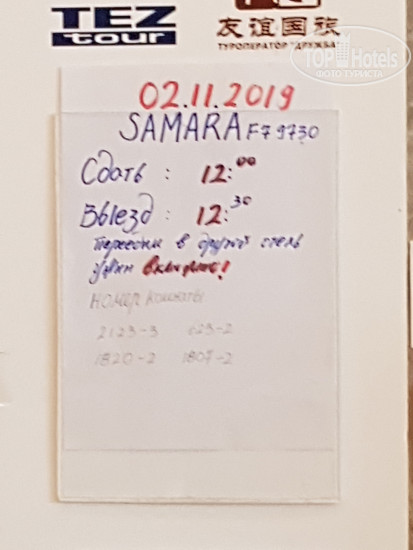 TEZ
tour
友谊国旅
ТУРОПЕРАТОР "ДРУЖБА"
TOPHotels
ФОТО ТУРИСТА
02.11.2019
SAMARA F7 9730
Сдать : 12:00
Выезд : 12:30
в другой отель
ужин включено!
номер комнаты
2123-3 623-2
1820-2 1807-2